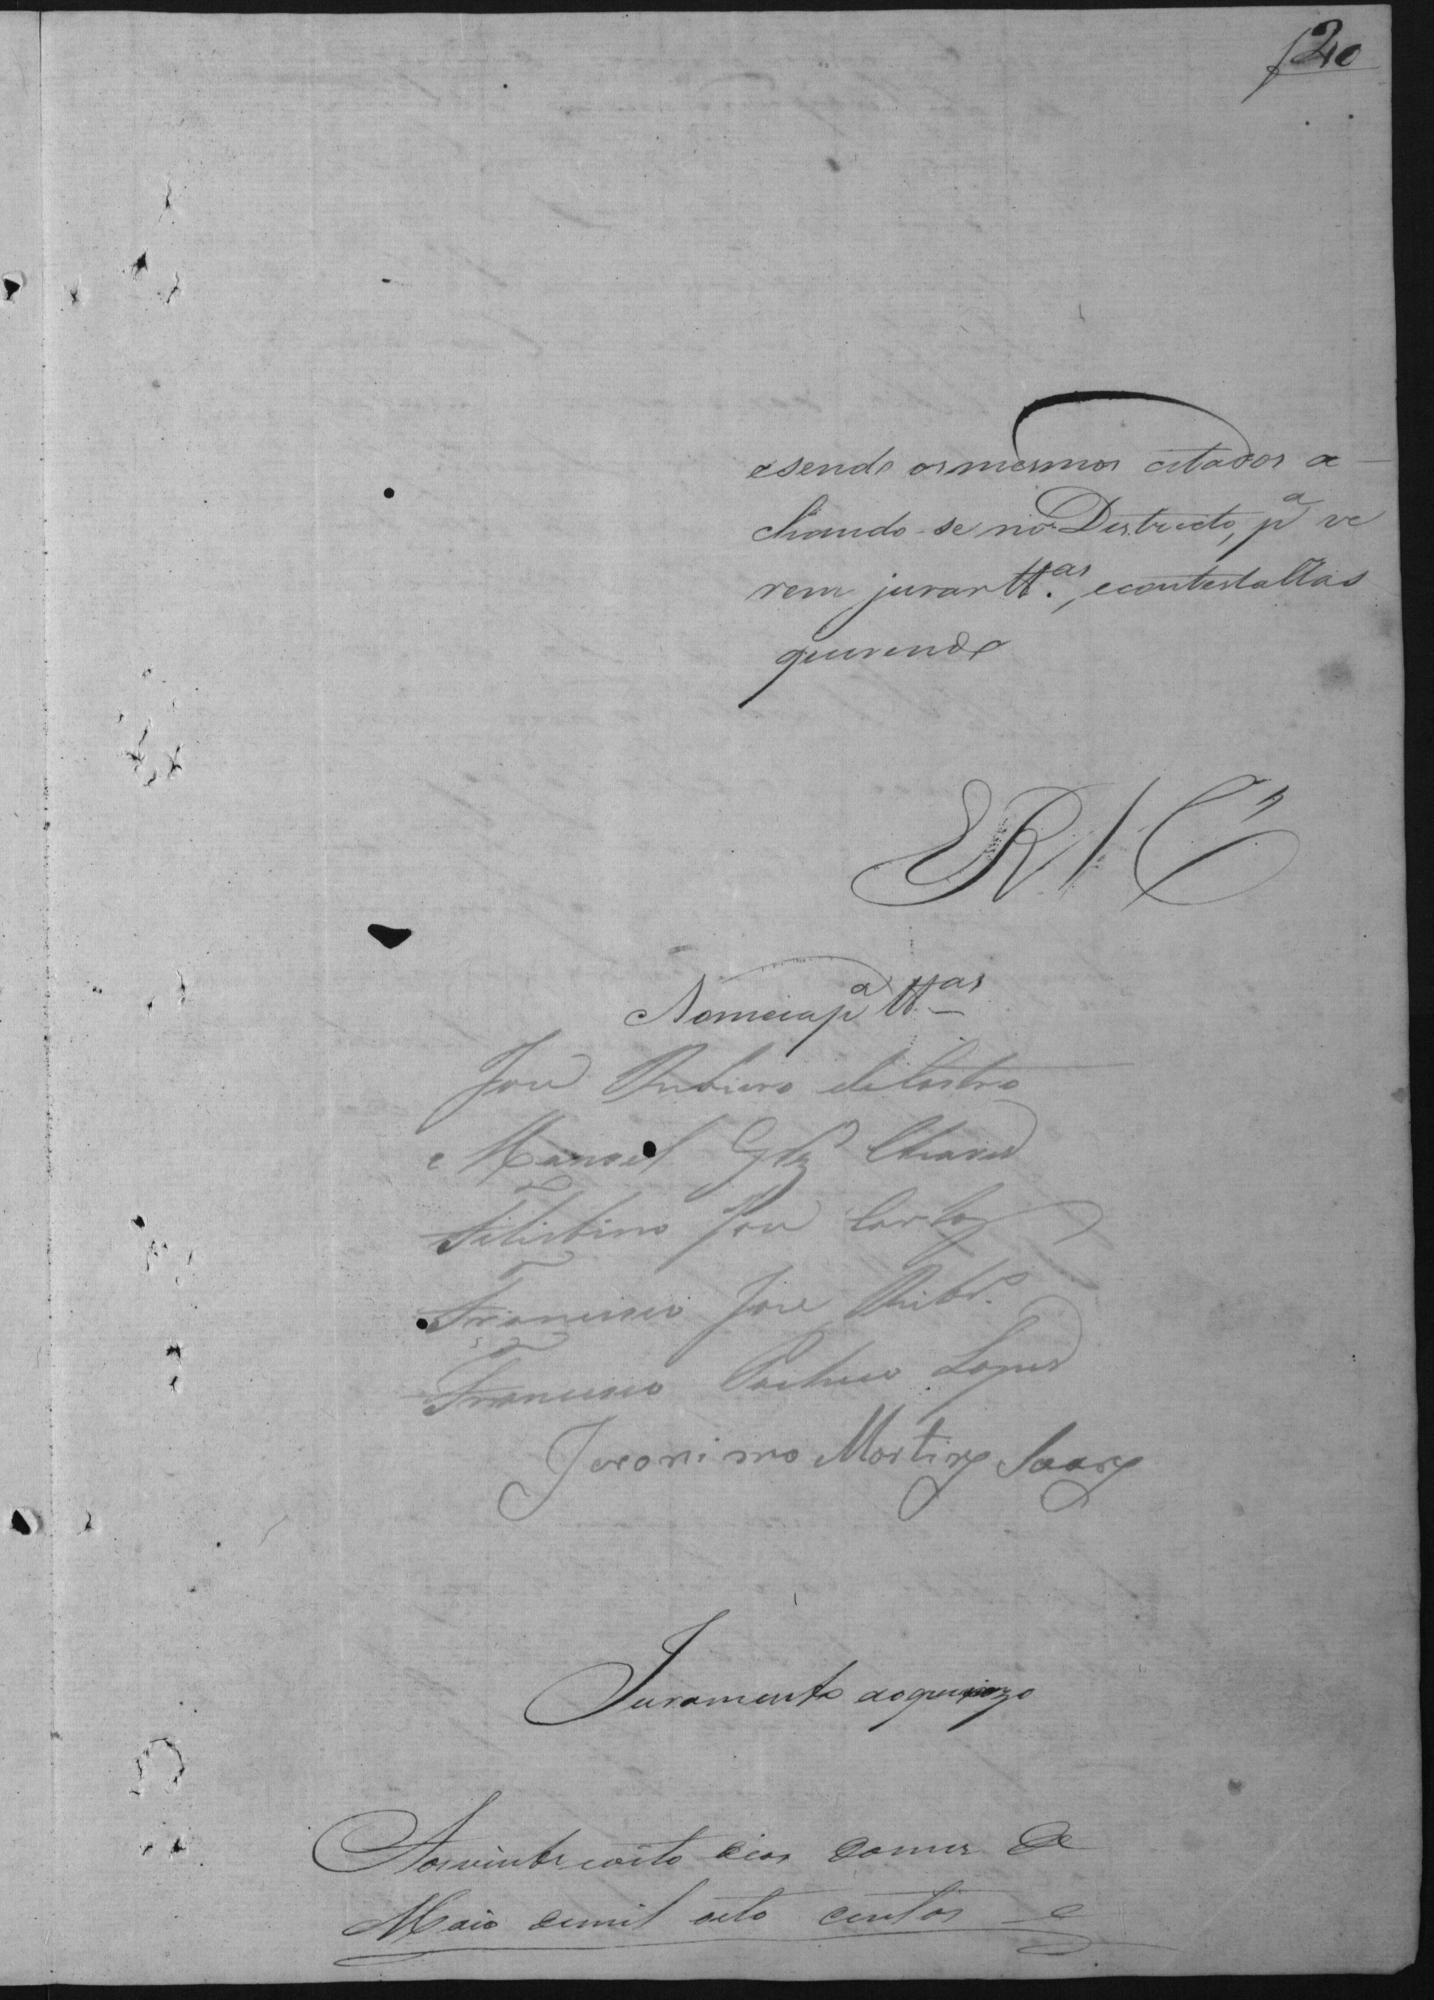 20
e sendo os mesmos citados a
chando-se no Destricto, pª ve
rem jurar ttas., e contestallas
querendo
E R J Cª
Nomeia pª ttas
José Ribeiro de Castro
Manoel Glz Chaves
Felisbino José
Francisco José Ribrº
Francisco Pacheco Lopes
Jeronimo Martins Soares
Juramento ao queixozo
Aos vinte e oito dias do mez de
Maio de mil oito centos e